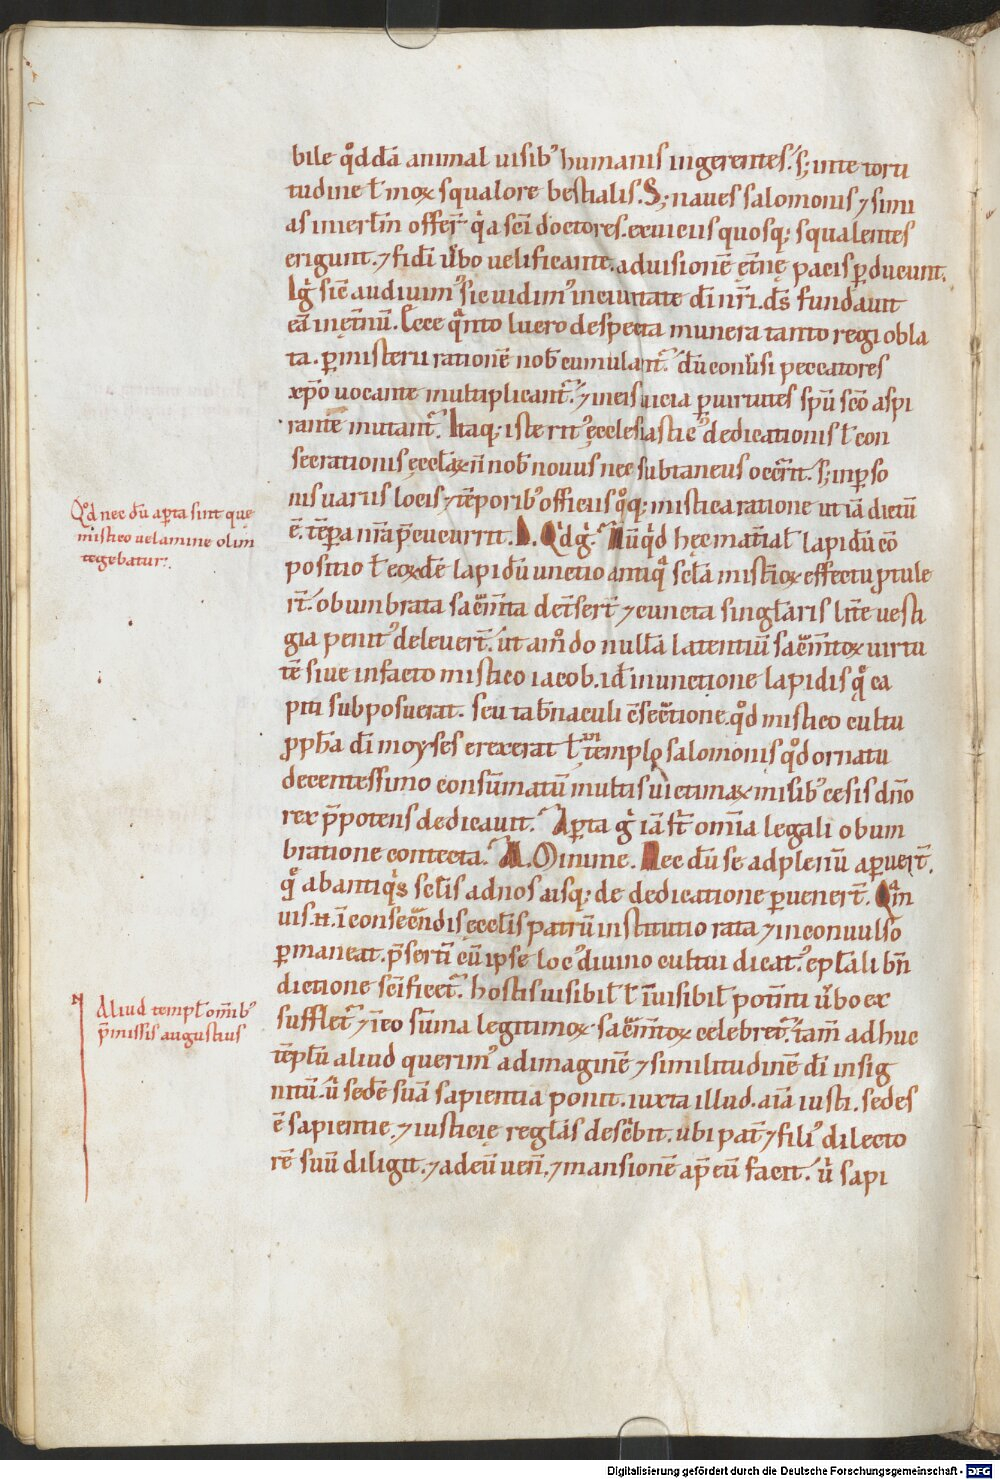 bile qͦddā animal uisibꝰ humanis ingerentes. s; inte tortu
tudine ł mox squalore bestialis. S; naues salomonis ⁊ simi
as inierłm offer̄ qͥa sc̄i doctores. ex uiciis quosq; squalentes
erigunt. ⁊ fidei u̇bo uelificante. ad uisionē ęt̄nę pacis ꝑducunt.
Igͥ sic audiuimꝰ sic uidimꝰ in ciuitate dī nr̄i. ds̄ fundauit
eā in ęt̄nū. Ecce qͣnto lucro despecta munera tanto regi obla
ta. ꝑ misterii rationē nob̄ cumulant᷑. dū conu̇si peccatores
xp̄o uocante multiplicant᷑. ⁊ in eis uicia ꝑ uirtutes sp̄u sc̄o aspi
rante mutant᷑. Itaq; iste ritꝰ ęcclesiasticꝰ dedicationis ł con
secrationis ęccl̄aꝝ n̄ nob̄ nouus nec subtaneus occr̄rit. s; in ꝑso
nis uariis locis ⁊ tēporibꝰ officiis qͦq; mistica ratione ut iā dictū
ē. tēpora nr̄a p̄cucurrit. D. Qͥd gͦ. Nūqͥd hęc mat̄ial̄ lapidū cō
positio ł eoꝝdē lapidū unctio antiqͣ scl̄a misticoꝝ effectu ptule
rt̄. obumbrata sac̄mta det̄sert̄ ⁊ cuncta singłaris lr̄e uesti
gia penitꝰ deleuert̄. ut amͦdo nulla latentiū sac̄mtoꝝ uirtu
tē siue in facto mistico iacob. id̄ in unctione lapidis qͦ ca
piti subposuerat. seu tab̄naculi cōsec̄tione. qͦd mistico cultu
ꝓph̄a dī moyses erexerat ł templo salomonis qͦd ornatu
decentissimo consūmatū multis uictimaꝝ misibꝰ cesis dn̄o
rex p̄potens dedicauit. Aꝑta gͥ iā st̄ om̄ia legali obum
bratione contecta. A. O mime. Nec dū se ad plenū aꝑuert̄.
qͣ ab antiqͥs scl̄is ad nos usq; de dedicatione ꝑuenert̄. Qm̄
uis. n. ī consec̄ndis ęccl̄is patrū institutio rata ⁊ inconuulsa
ꝑmaneat. p̄serti cū ipse locꝰ diuino cultui dicatꝰ. ep̄łali bn̄
dictione sc̄ificet᷑. hostis uisibil̄ ł īuisibil̄ potenti u̇bo ex
sufflet᷑ ⁊ ī eo sūma legitimoꝝ sac̄mtoꝝ celebret᷑. tam̄ adhuc
tēplū aliud querimꝰ ad imaginē ⁊ similitudinē dī insig
nitū. ů sedē suā sapientia ponit. iuxta illud. aīa iusti. sedes
ē sapientie. ⁊ iusticię regłas desc̄bit. ubi pat̄ ⁊ filiꝰ dilecto
rē suū diligit. ⁊ ad eū ven̄. ⁊ mansionē ap̄ eū facit. ů sapi
Qͦd nec dū aꝑta sint que
mistico uelamine olim
tegebatur.
Aliud templ̄ om̄ibꝰ
p̄missis augustius
Digitalisierung gefördert durch die Deutsche Forschungsgemeinschaft - DFG